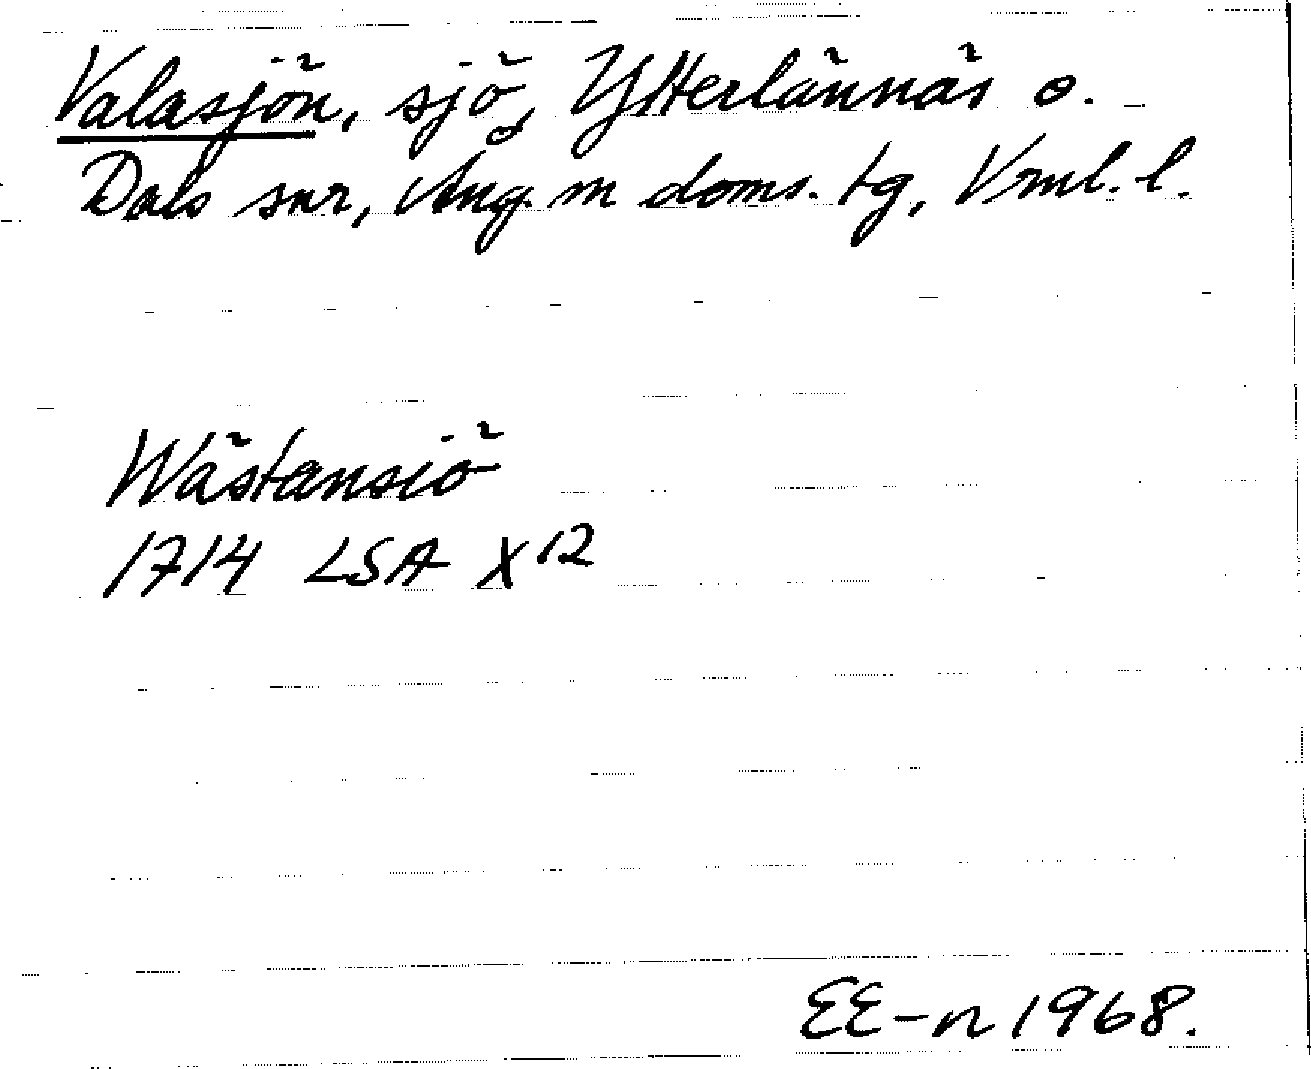 Valasjön, sjö, Ytterlännäs o.
Dals snr, Ång. m doms. tg, Vml. l.
Wästansiö
1714 LSA X 12
EE-n 1968.